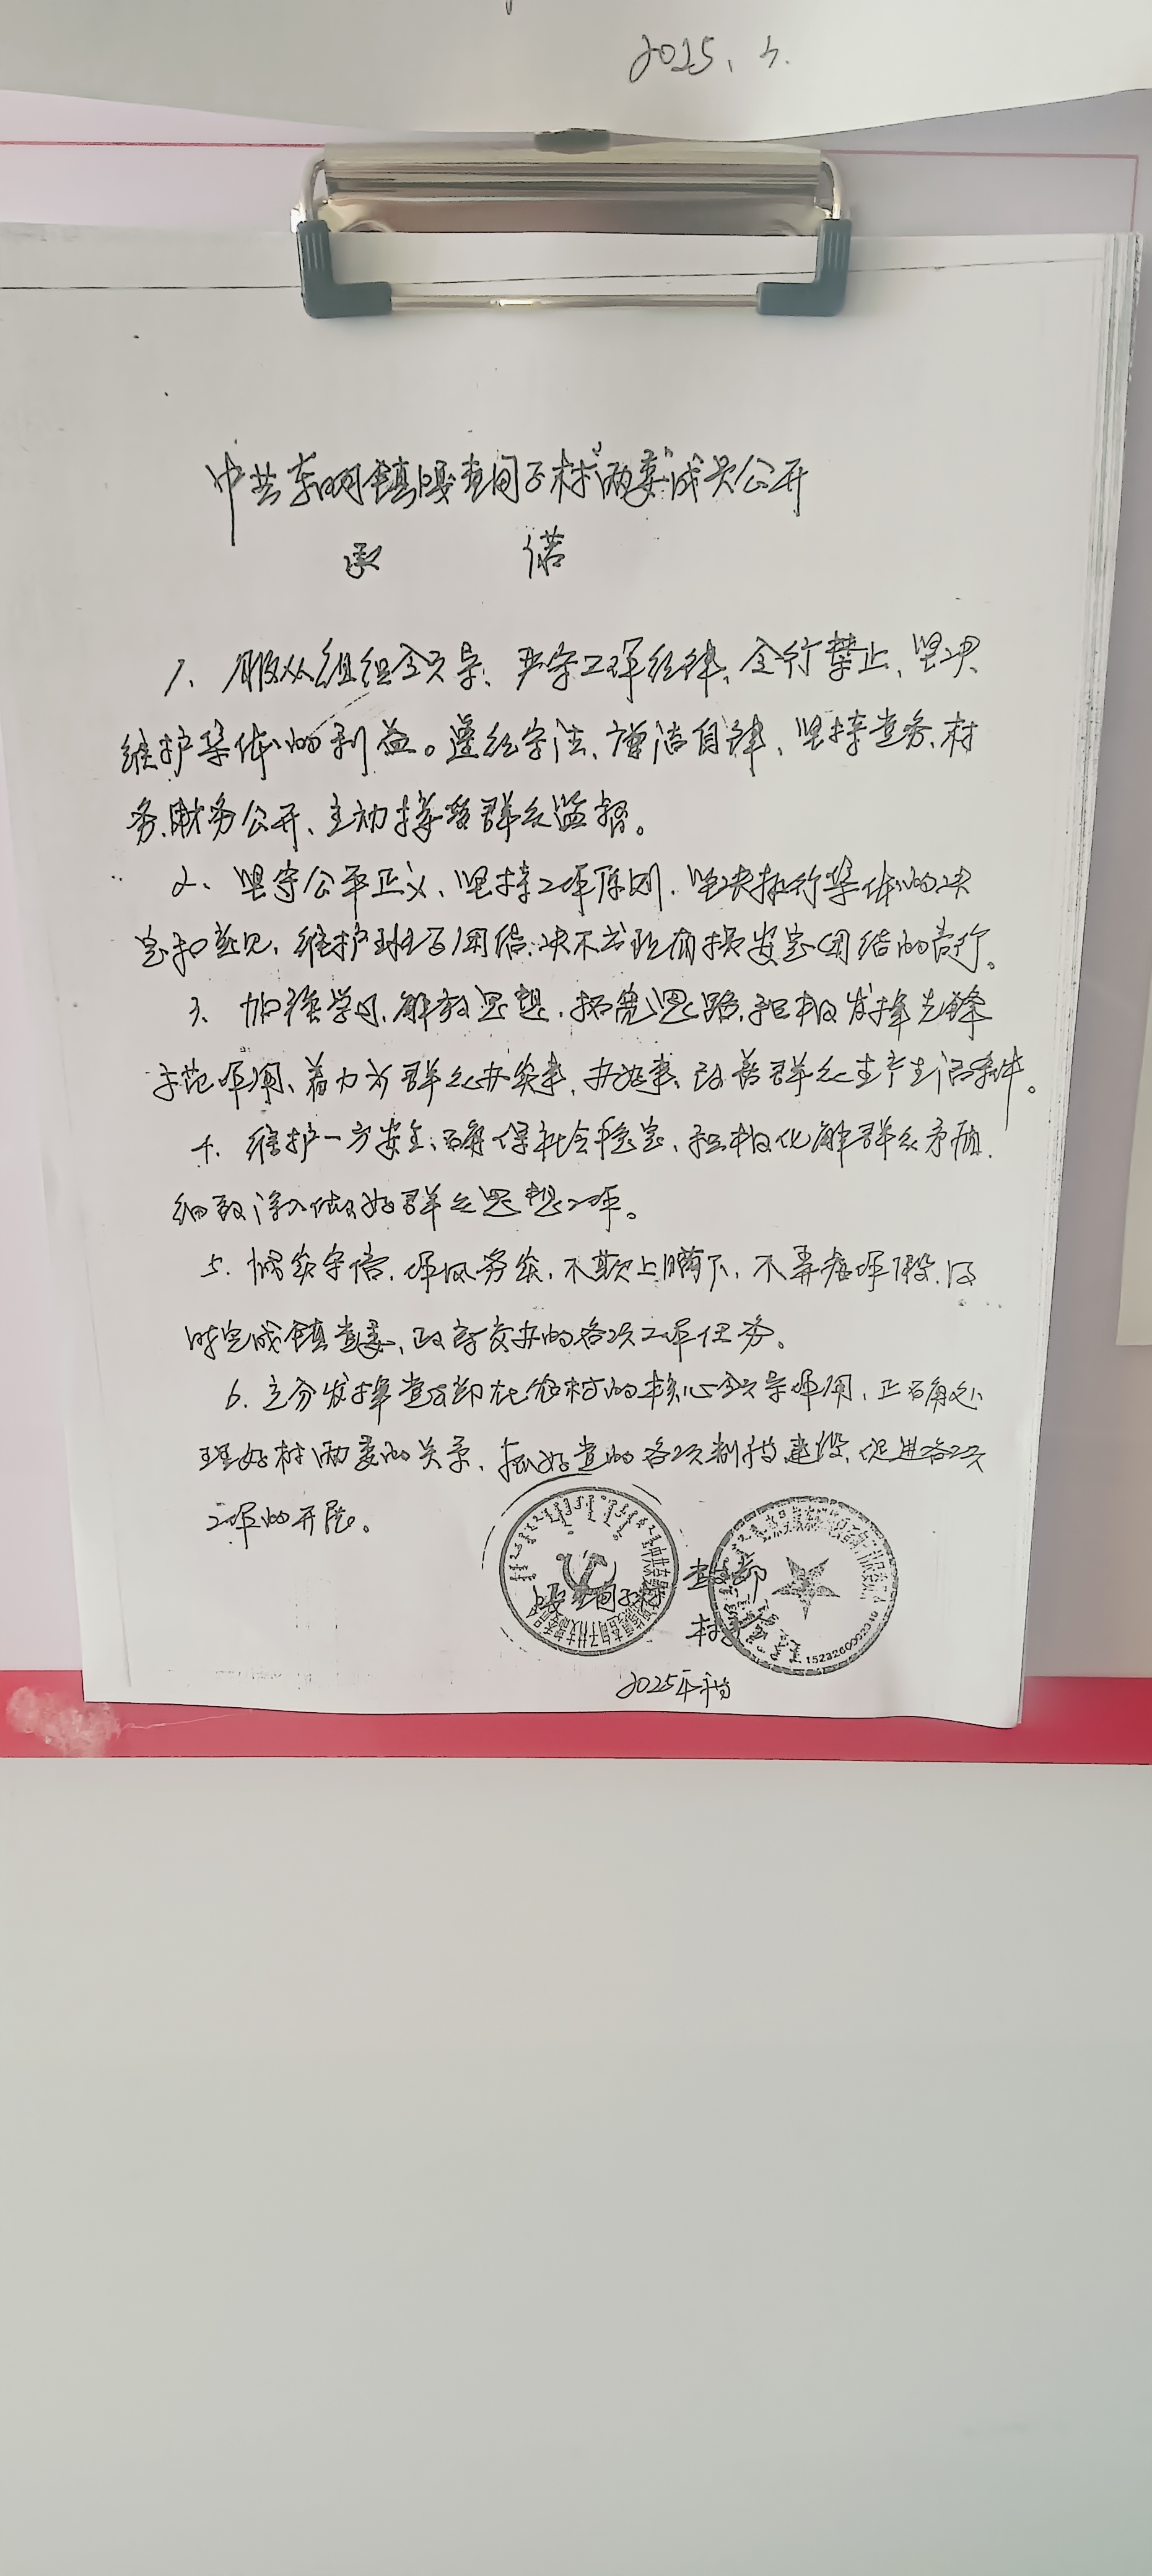 2025、3.
中共东明镇嘎查甸子村"两委"成员公开
承 诺
1、服从组织领导、严守工作纪律、令行禁止、坚决
维护集体的利益。遵纪守法、廉洁自律、坚持党务、村
务、财务公开、主动接受群众监督。
2、坚守公平正义、坚持工作原则、坚决执行集体的决
定和意见、维护班子团结、决不出现有损安定团结的言行。
3、加强学习、解放思想、拓宽思路、积极发挥先锋
示范作用、着力为群众办实事、办好事、改善群众生产生活条件。
4、维护一方安全、确保社会稳定、积极化解群众矛盾、
细致深入做好群众思想工作。
5、诚实守信、作风务实、不欺上瞒下、不弄虚作假、及
时完成镇党委、政府交办的各项工作任务。
6、充分发挥党支部在农村的核心领导作用、正确处
理好村两委的关系、抓好党的各项制度建设、促进各项
工作的开展。
党支部
村委
2025年